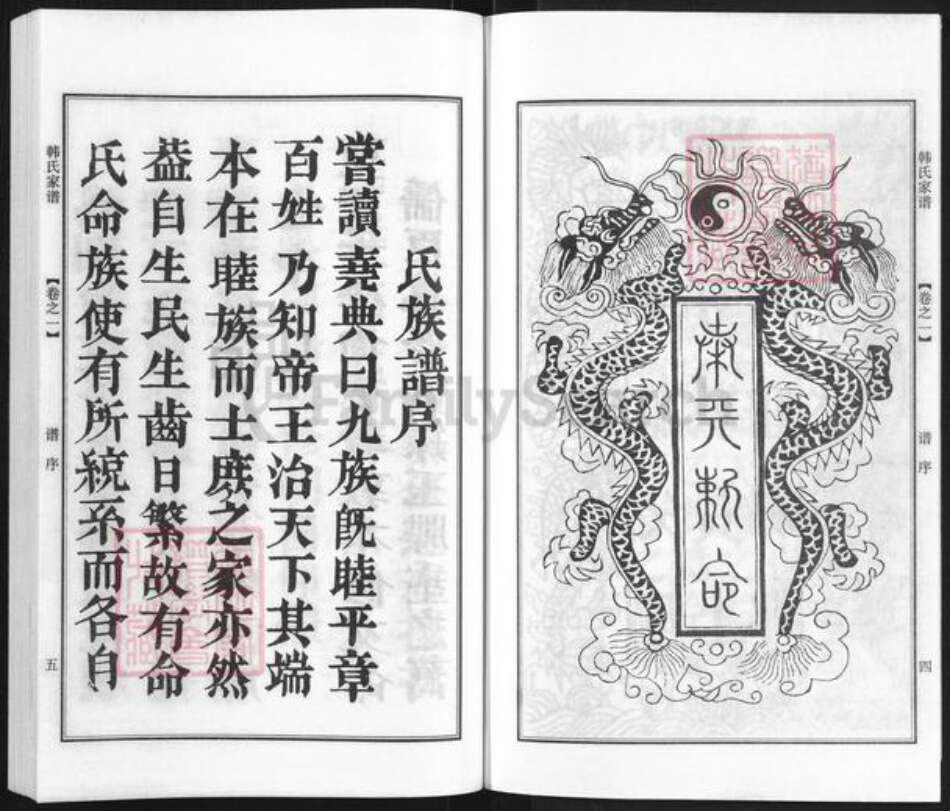 韩氏家谱
【卷之一】
谱序
四
勅命
氏族譜序
嘗讀堯典曰九族既睦平章
百姓乃知帝王治天下其端
本在睦族而士庶之家亦然
葢自生民生齒日繁故有命
氏命族使有所統系而各自
韩氏家谱
【卷之一】
谱序
五
FamilySearch